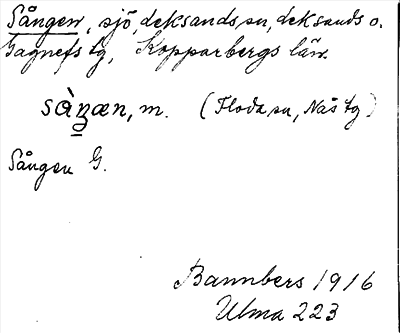 Sången, sjö, Leksands sn, Leksands o.
Gagnefs tg, Kopparbergs län.
sàŋæn, m. (Floda sn, Nås tg)
Sången G.
Bannbers 1916
Ulma 223